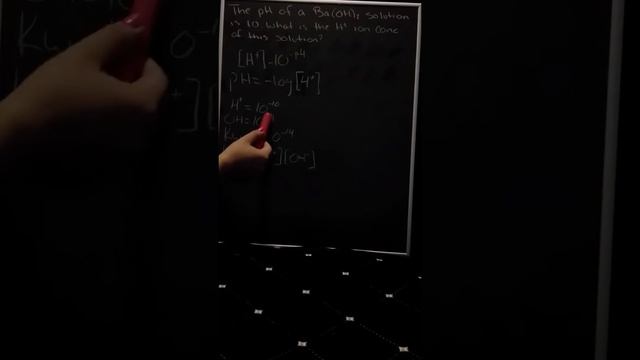 The pH of a Ba(OH)₂ solution
is 10. what is the H⁺ ion conc
of this solution?
[H⁺]=10⁻ᵖᴴ
pH = -log[H⁺]
H⁺ = 10⁻¹⁰
OH = 10
Kw 0⁻¹⁴
][OH⁻]